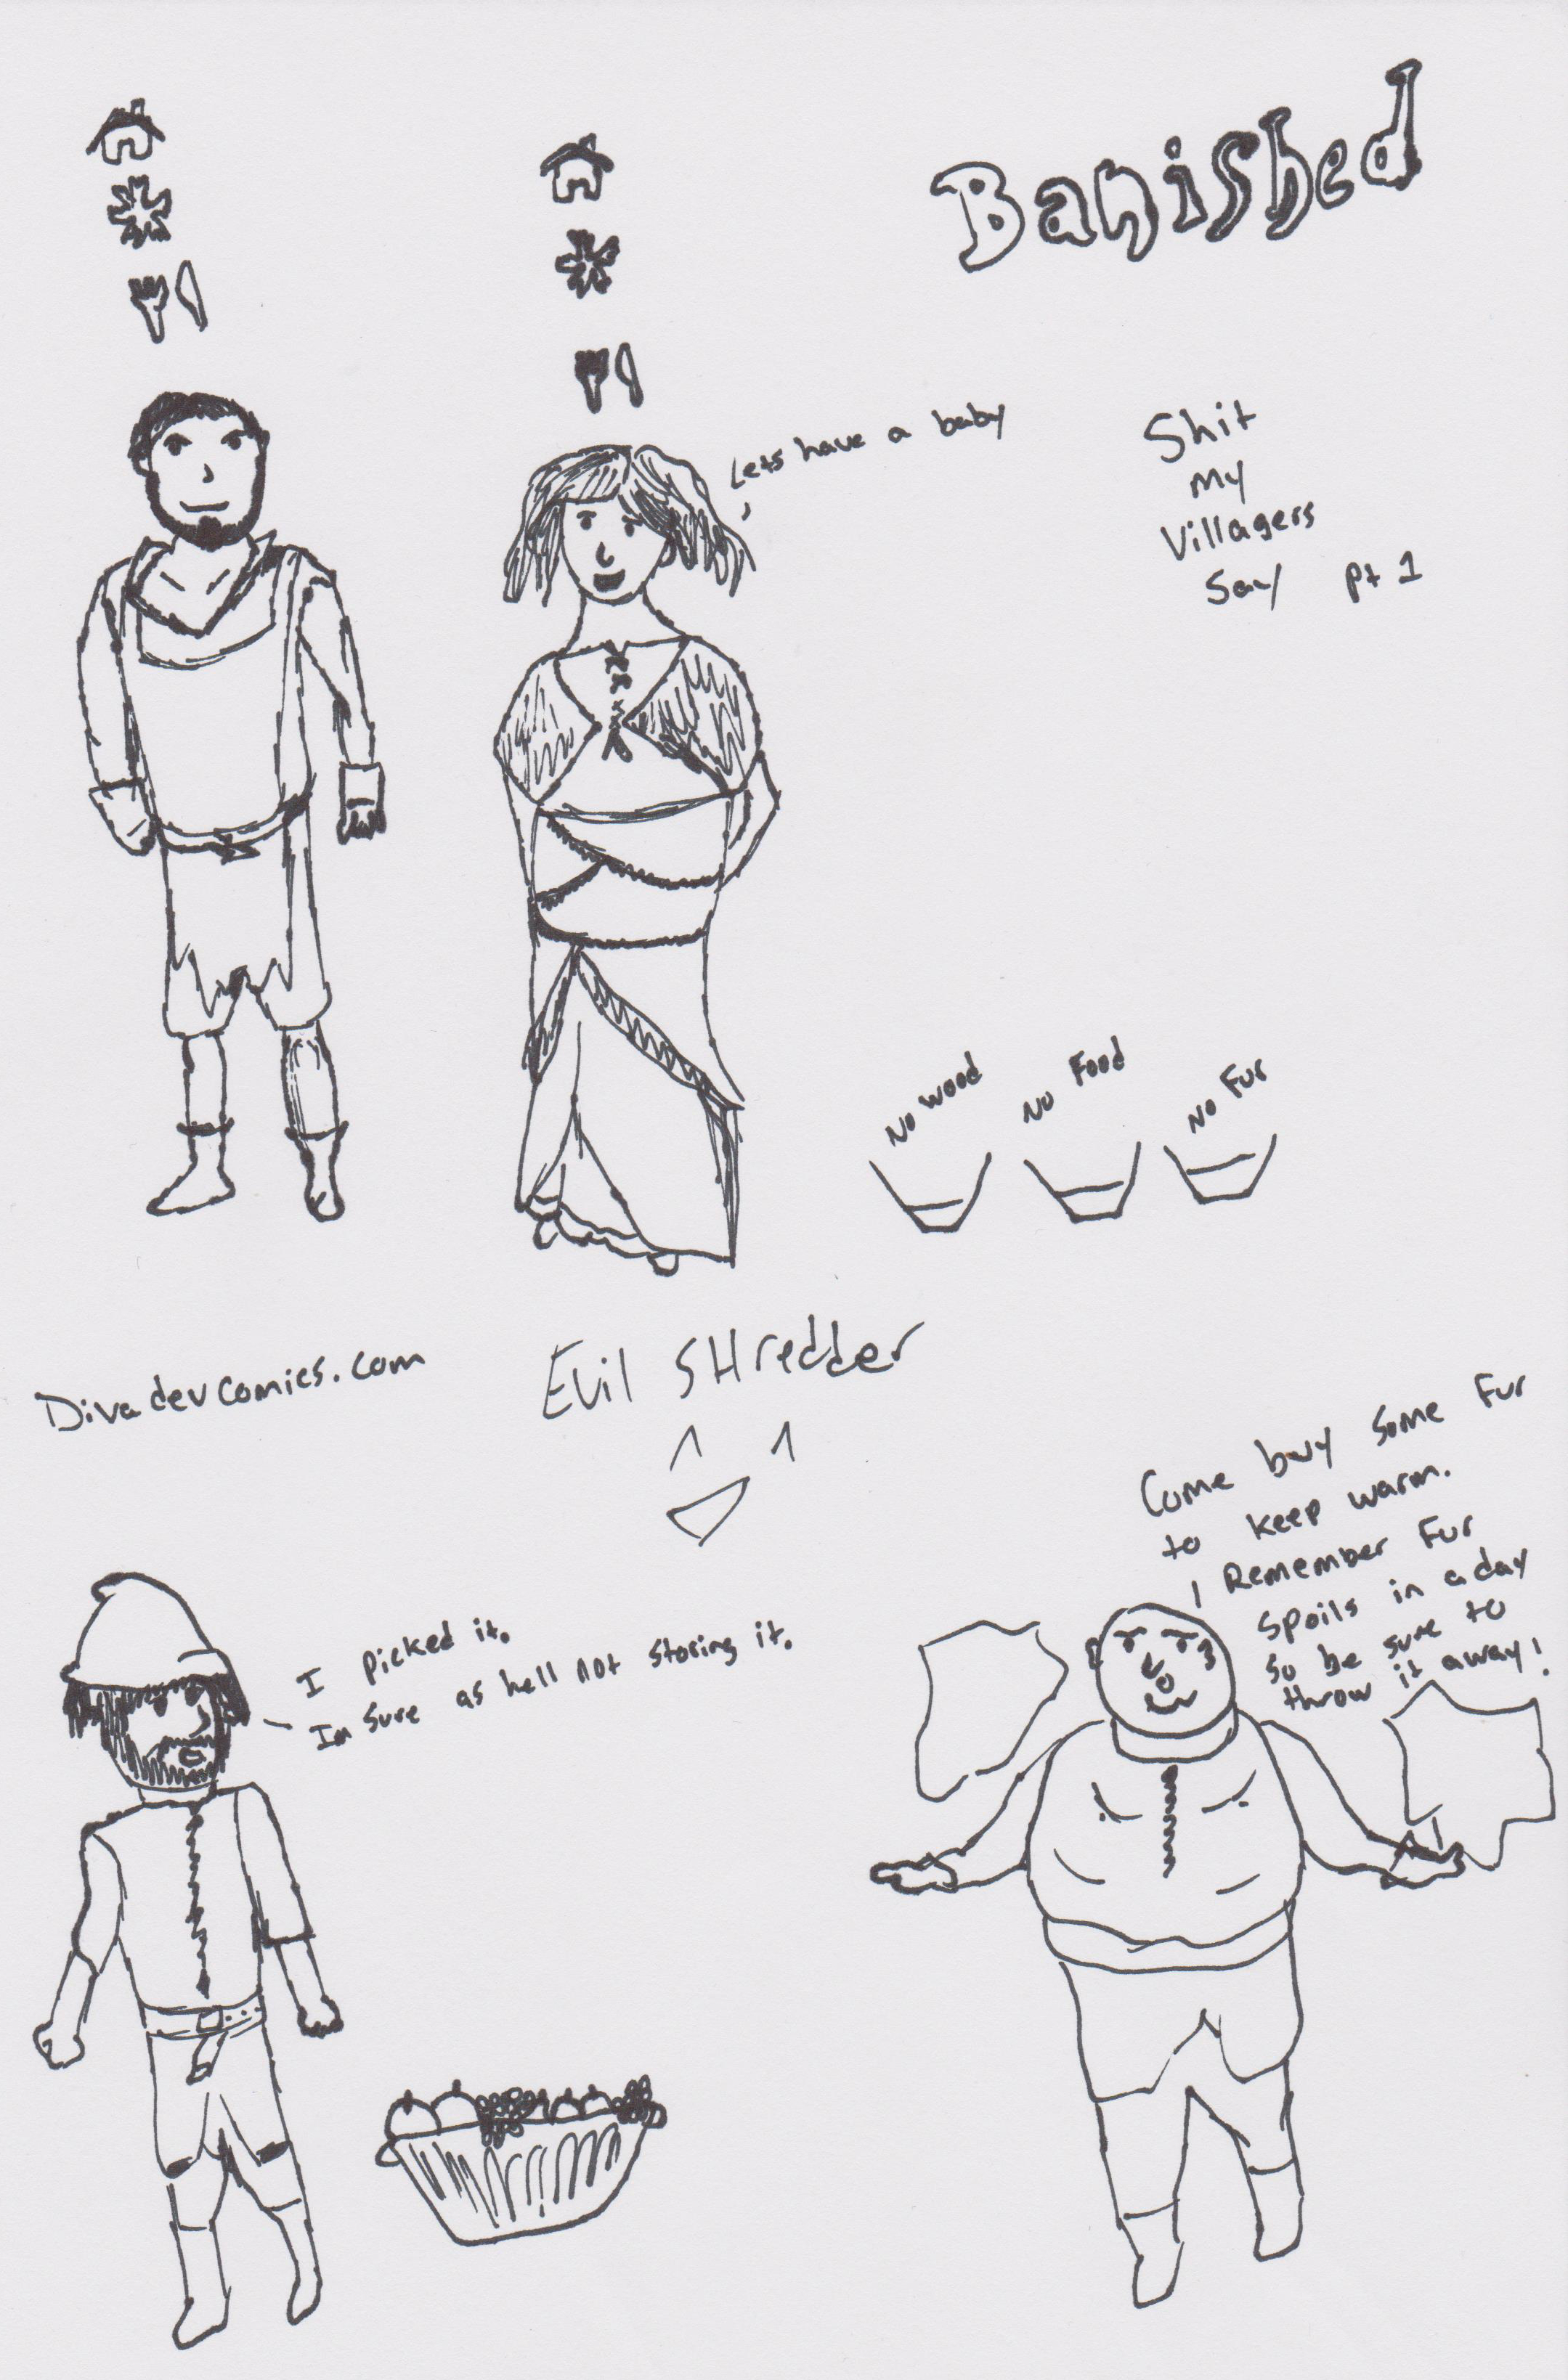 Banished
Lets have a baby
Shit
my
Villagers
Say pt 1
No wood
No Food
No Fur
Divadevcomics.com
Evil SHredder
Come buy some Fur
to keep warm.
Remember Fur
spoils in a day
so be sure to
throw it away!
I picked it.
Im sure as hell not storing it.